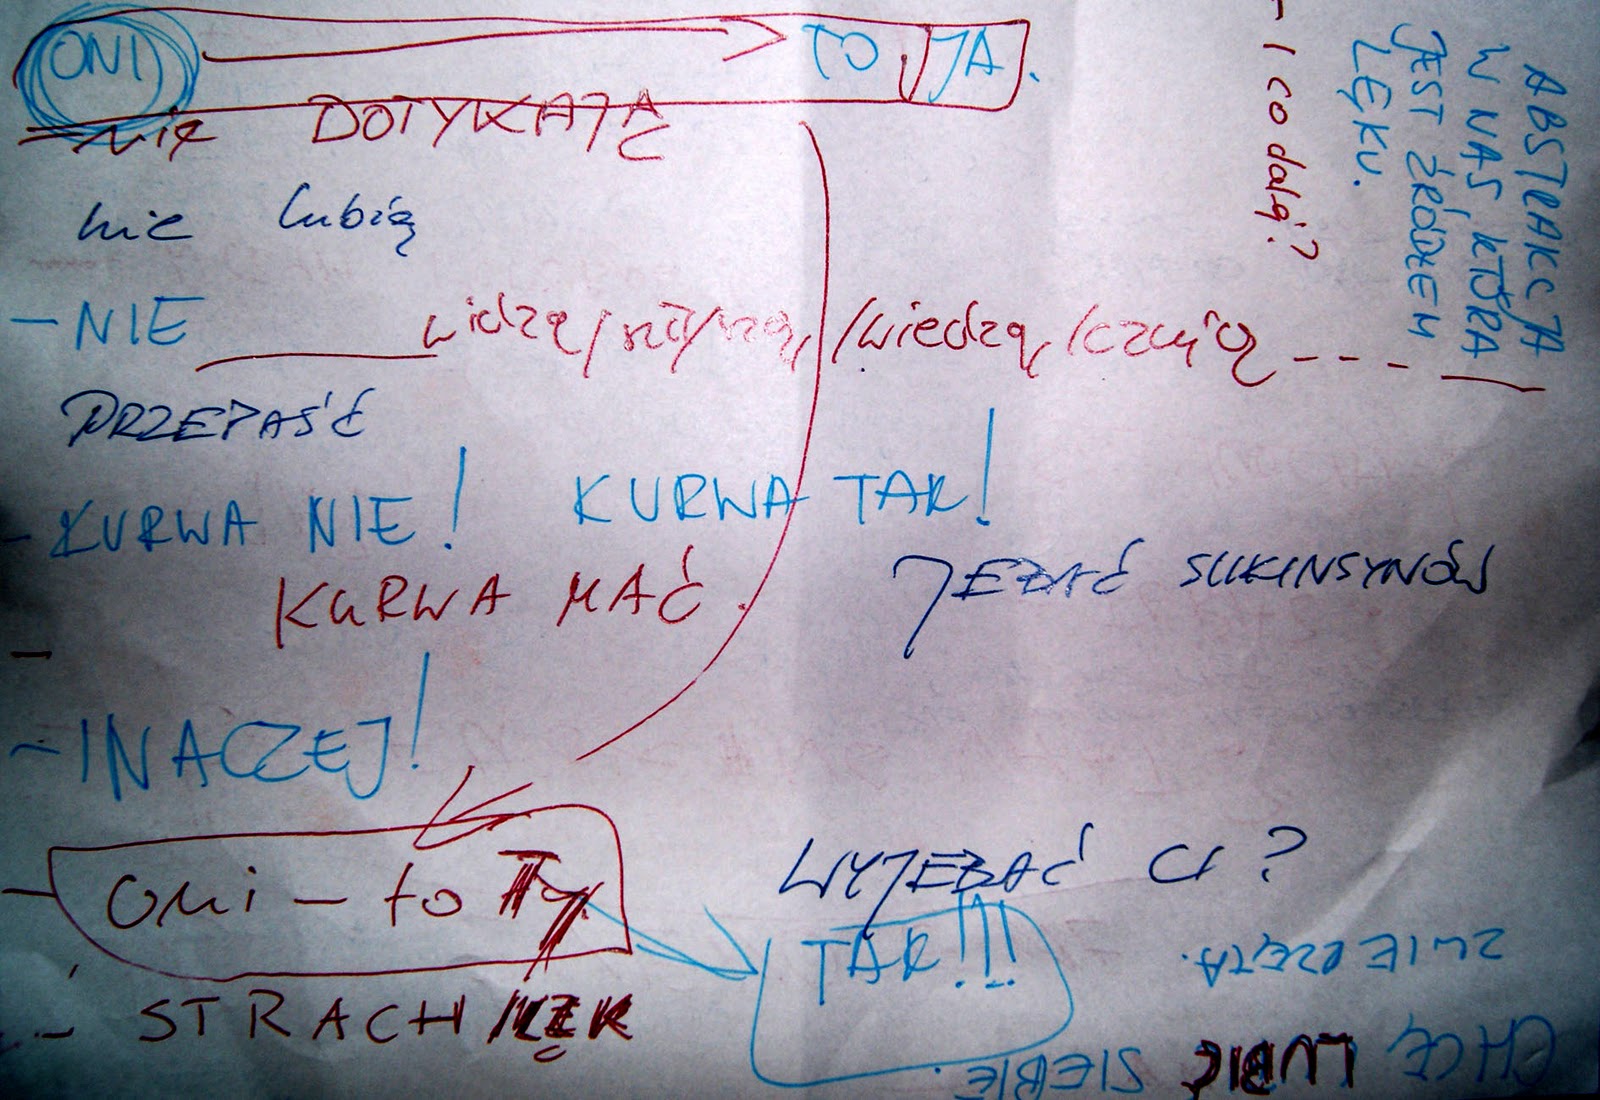 ONI TO JA.
nie DOTYKAJĄ
nie lubią
- NIE widzą/słyszą/wiedzą/czują - - - -
PRZEPAŚĆ
- KURWA NIE! KURWA TAK!
KURWA MAĆ.
JEBAĆ SUKINSYNÓW
- INACZEJ!
- Oni - to Ty
WYJEBAĆ CI?
TAK!!!
- STRACH/LĘK
ABSTRAKCJA
W NAS KTÓRA
JEST ŹRÓDŁEM
LĘKU.
- I co dalej?
CHCĘ LUBIĆ SIEBIE.